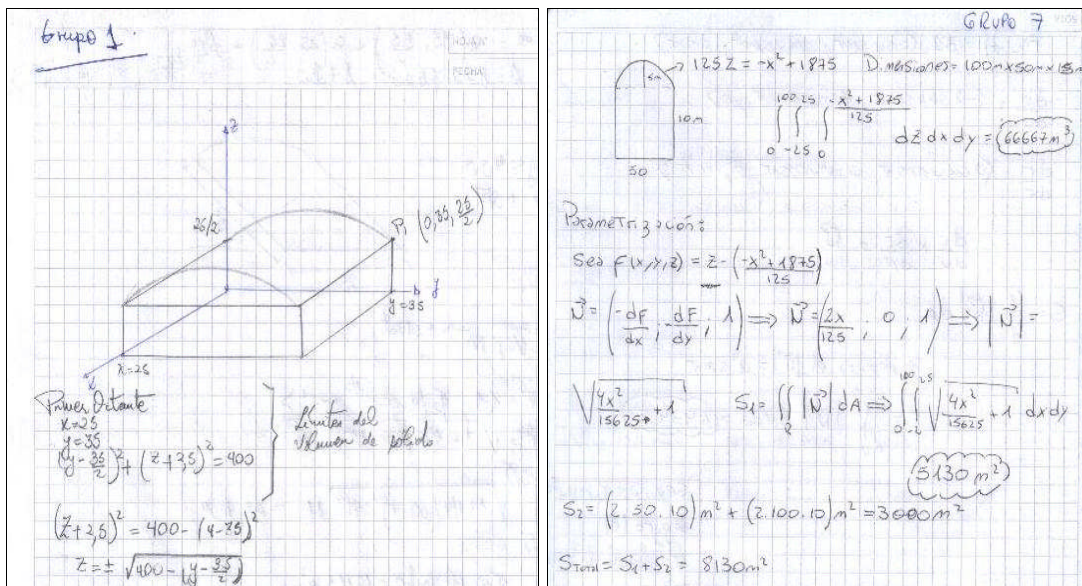 Grupo 1
z
25/2
P₁ (0, 35, 25/2)
y
y=35
x=25
x
Primer Octante
x=25
y=35
(y - 35/2)² + (z+2,5)² = 400
Límites del
volumen de sólido
(z+2,5)² = 400 - (y-35)²
z = ± √(400 - (y - 35/2))
GRUPO 7
5m
125 z = -x² + 1875 Dimensiones = 100m x 50m x 15m
10m
50
∫₀¹⁰⁰ ∫₋₂₅²⁵ ∫₀^((-x²+1875)/125) dz dx dy = 66667 m³
Parametrización:
Sea F(x,y,z) = z - (-x² + 1875 / 125)
N⃗ = (-dF/dx ; -dF/dy ; 1) ⟹ N⃗ = (2x/125 ; 0 ; 1) ⟹ |N⃗| =
√(4x²/15625 + 1) S₁ = ∬_R |N⃗| dA ⟹ ∫₀¹⁰⁰ ∫₋₂²⁵ √(4x²/15625 + 1) dx dy
5130 m²
S₂ = (2.50.10) m² + (2.100.10) m² = 3000 m²
S Total = S₁ + S₂ = 8130 m²